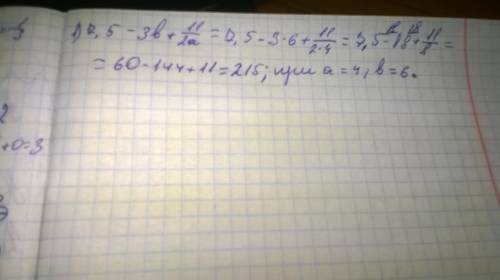 1) 7,5 - 3b + 11/2a = 7,5 - 3·6 + 11/2·4 = 7,5 - 18 + 11/8 =
= 60 - 144 + 11 = 215; при a = 4, b = 6.
2
+0=3